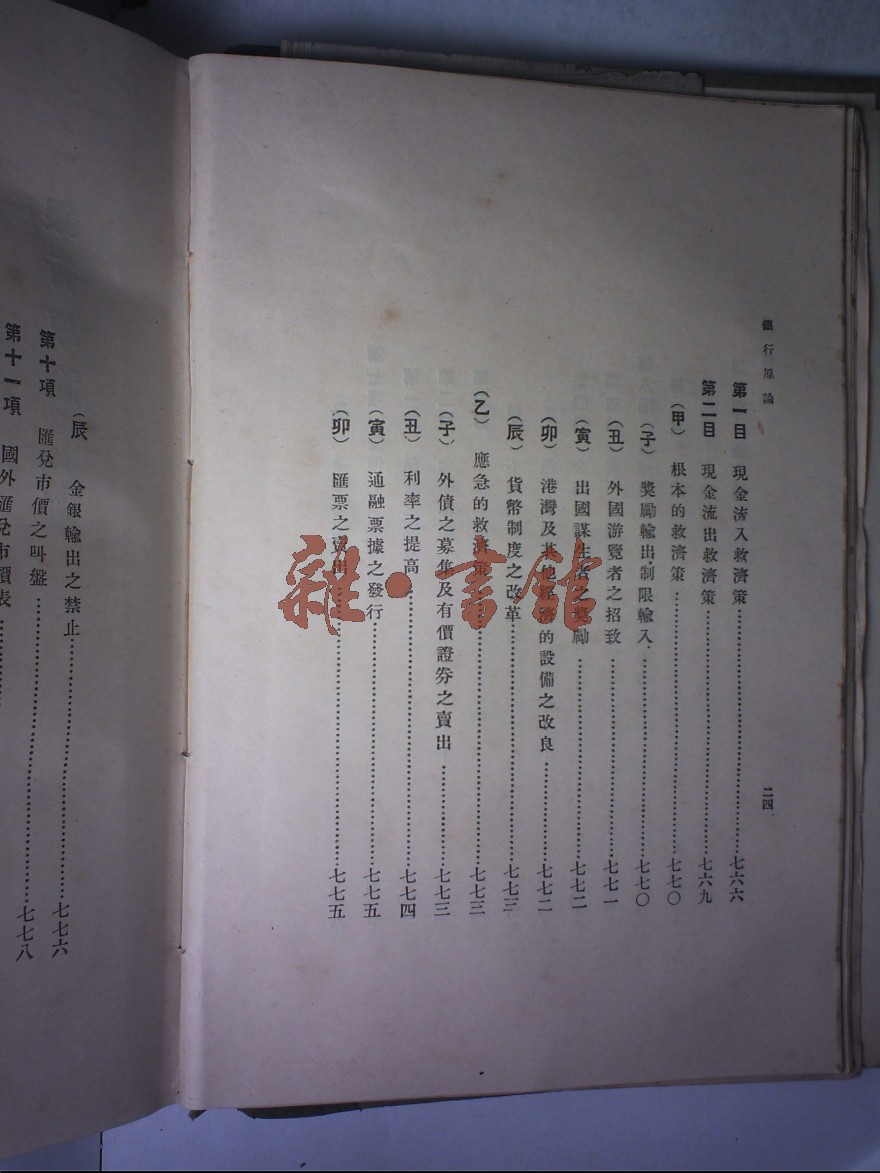 銀行原論
二四
第一目 現金流入救濟策……七六六
第二目 現金流出救濟策……七六九
(甲) 根本的救濟策……七七〇
(子) 獎勵輸出·制限輸入……七七〇
(丑) 外國游覽者之招致……七七一
(寅) 出國謀生者之獎勵……七七二
(卯) 港灣及其他經濟的設備之改良……七七二
(辰) 貨幣制度之改革……七七三
(乙) 應急的救濟策……七七三
(子) 外債之募集及有價證券之賣出……七七三
(丑) 利率之提高……七七四
(寅) 通融票據之發行……七七五
(卯) 匯票之賣出……七七五
(辰) 金銀輸出之禁止……七七六
第十項 匯兌市價之叫盤……七七八
第十一項 國外匯兌市價表……
雜·書館